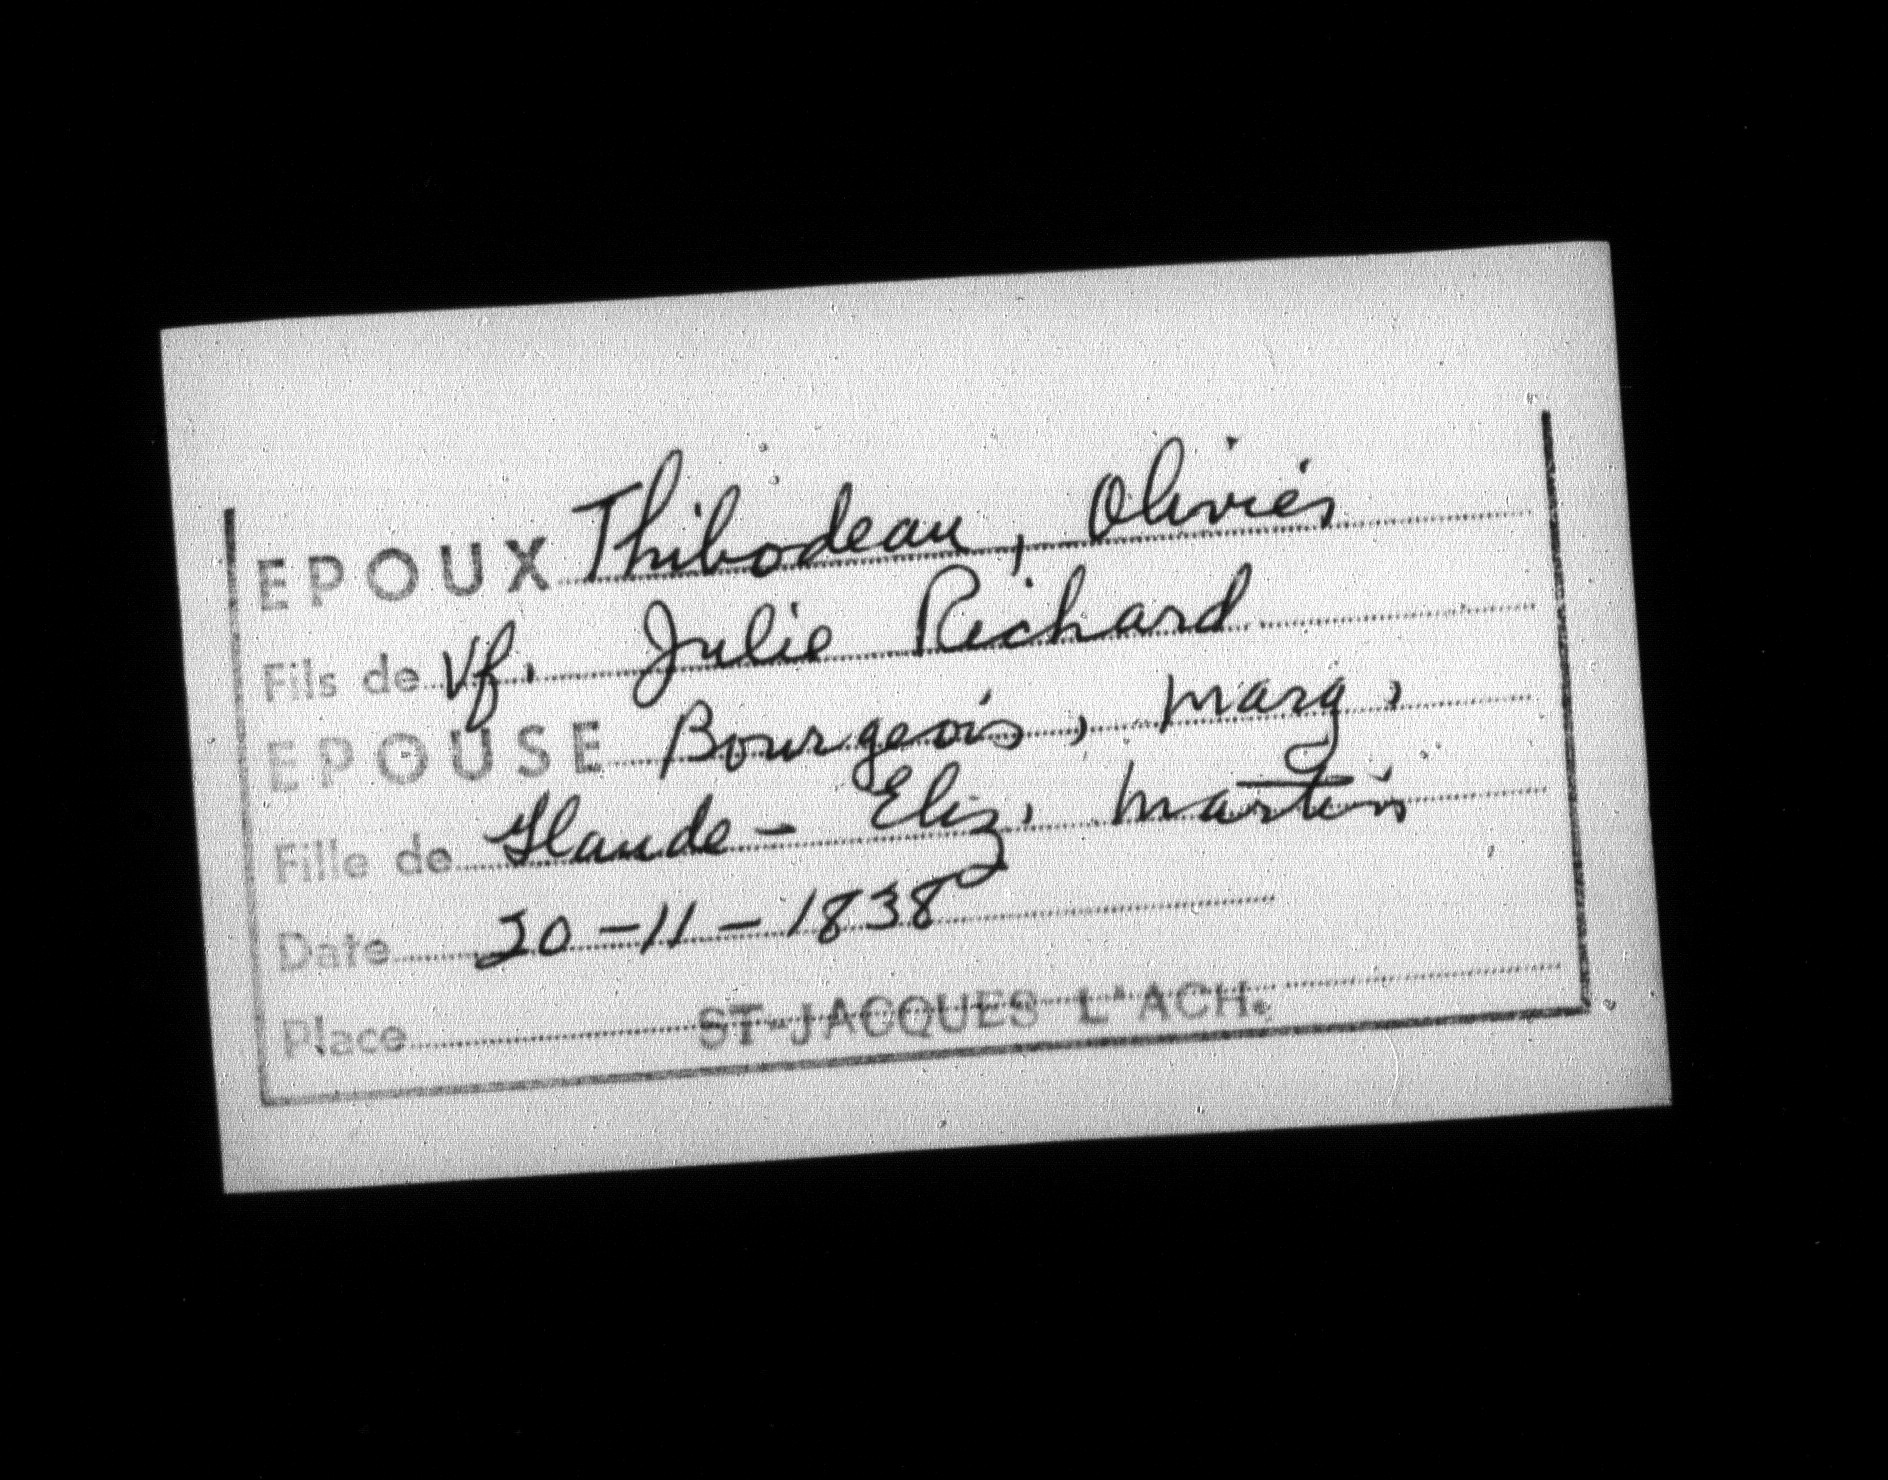 EPOUX Thibodeau, Olivier
Fils de Vf. Julie Richard
EPOUSE Bourgeois, Marg.
Fille de Glaude - Eliz. Martin
Date 20-11-1838
Place ST-JACQUES L'ACH.